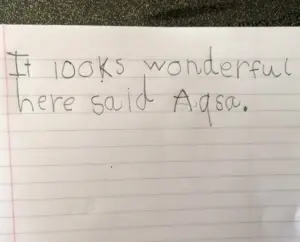 It looks wonderful
here said Aqsa.